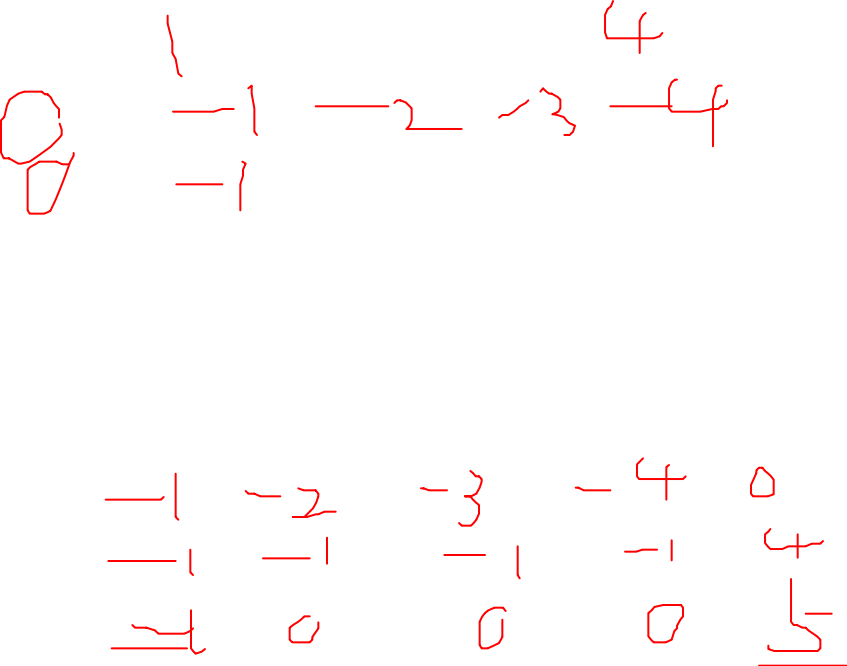 1 4
0 -1 -2 -3 -4
0 -1
-1 -2 -3 -4 0
-1 -1 -1 -1 4
-1 0 0 0 5